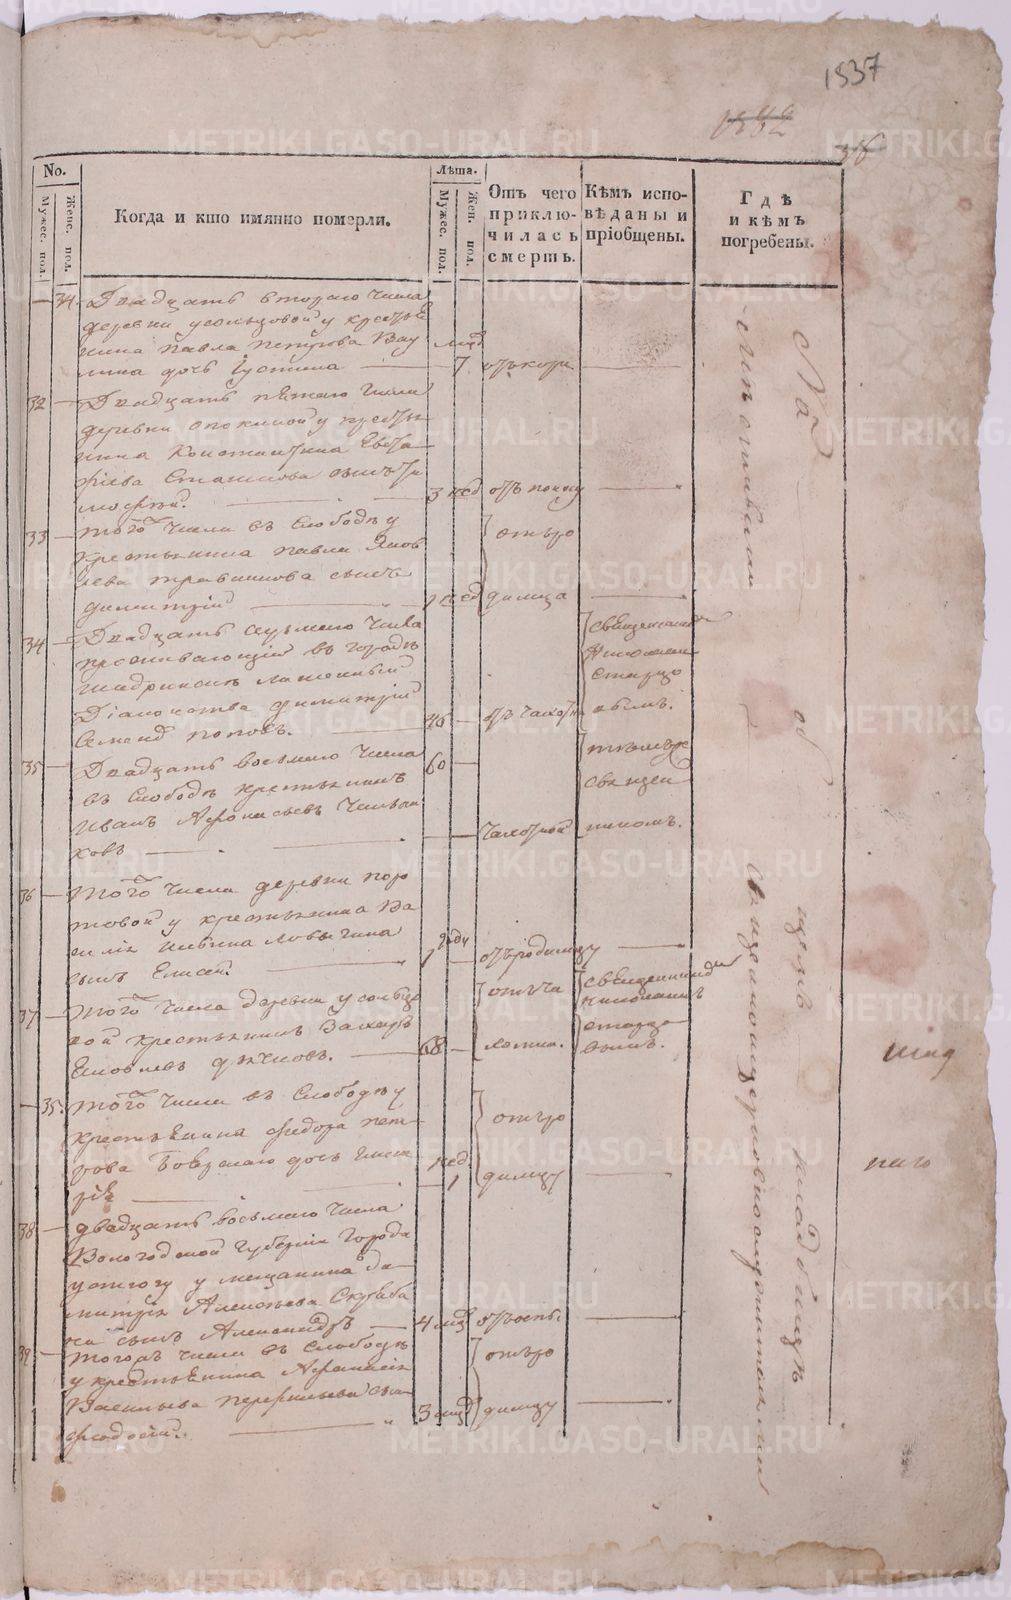 1537
No.
Мужес. пол.
Женс. пол.
Когда и кто имянно померли.
Лѣта.
Мужес. пол.
Жен. пол.
Отъ чего приклю-чилась смерть.
Кѣмъ испо-вѣданы и пріобщены.
Гдѣ и кѣмъ погребены.
34. Двадцать втораго числа
деревни усольцовой у крестья
нина павла петрова Вау
лина дочь Густина
7
отъ кори
32 Двадцать пятаго числа
деревни у кресть
нина Константина Евста
фіева сынъ Ти
мофѣй.
3 нед отъ поносу
33 того числа въ Слободѣ у
крестьянина павла Яков
лева травникова сынъ
димитрій
1 нед
отъ ро
димца
34 Двадцать седьмаго числа
проживающій въ городѣ
шадринскѣ лишенный
Діаконства димитрій
Семенов поповъ.
46
отъ чахотки
священником
Николаем
Старцо
вымъ.
35 Двадцать восьмаго числа
въ Слободѣ крестьянинъ
Иванъ Афонасьевъ
ковъ
60
чахоткой
тѣмъ же
священ
никомъ.
36 того числа деревни пор
товой у крестьянина Ва
силія
сынъ Елисей.
1 году
отъ родимцу
37 того числа деревни усольцо
вой крестьянинъ Захаръ
Яковлевъ дьячковъ.
68
отъ ча
хотки.
священником
николаемъ
старцо
вымъ.
35. того числа въ Слободѣ у
крестьянина федора пет
рова дочь Гликѣ
рія
нед.
1
отъ ро
димцу
38 двадцать восьмаго числа
Вологодской губерніи города
устюгу у мещанина Ди
митрія Алексѣева Скряби
на сынъ Александръ
4 мѣс отъ оспы.
39 тогожъ числа въ Слободѣ
у крестьянина Афанасія
Васильева перфильева сынъ
феодосій.
3 мѣс
отъ ро
димцу
На общемъ кладбищѣ
священноцерковнослужителями